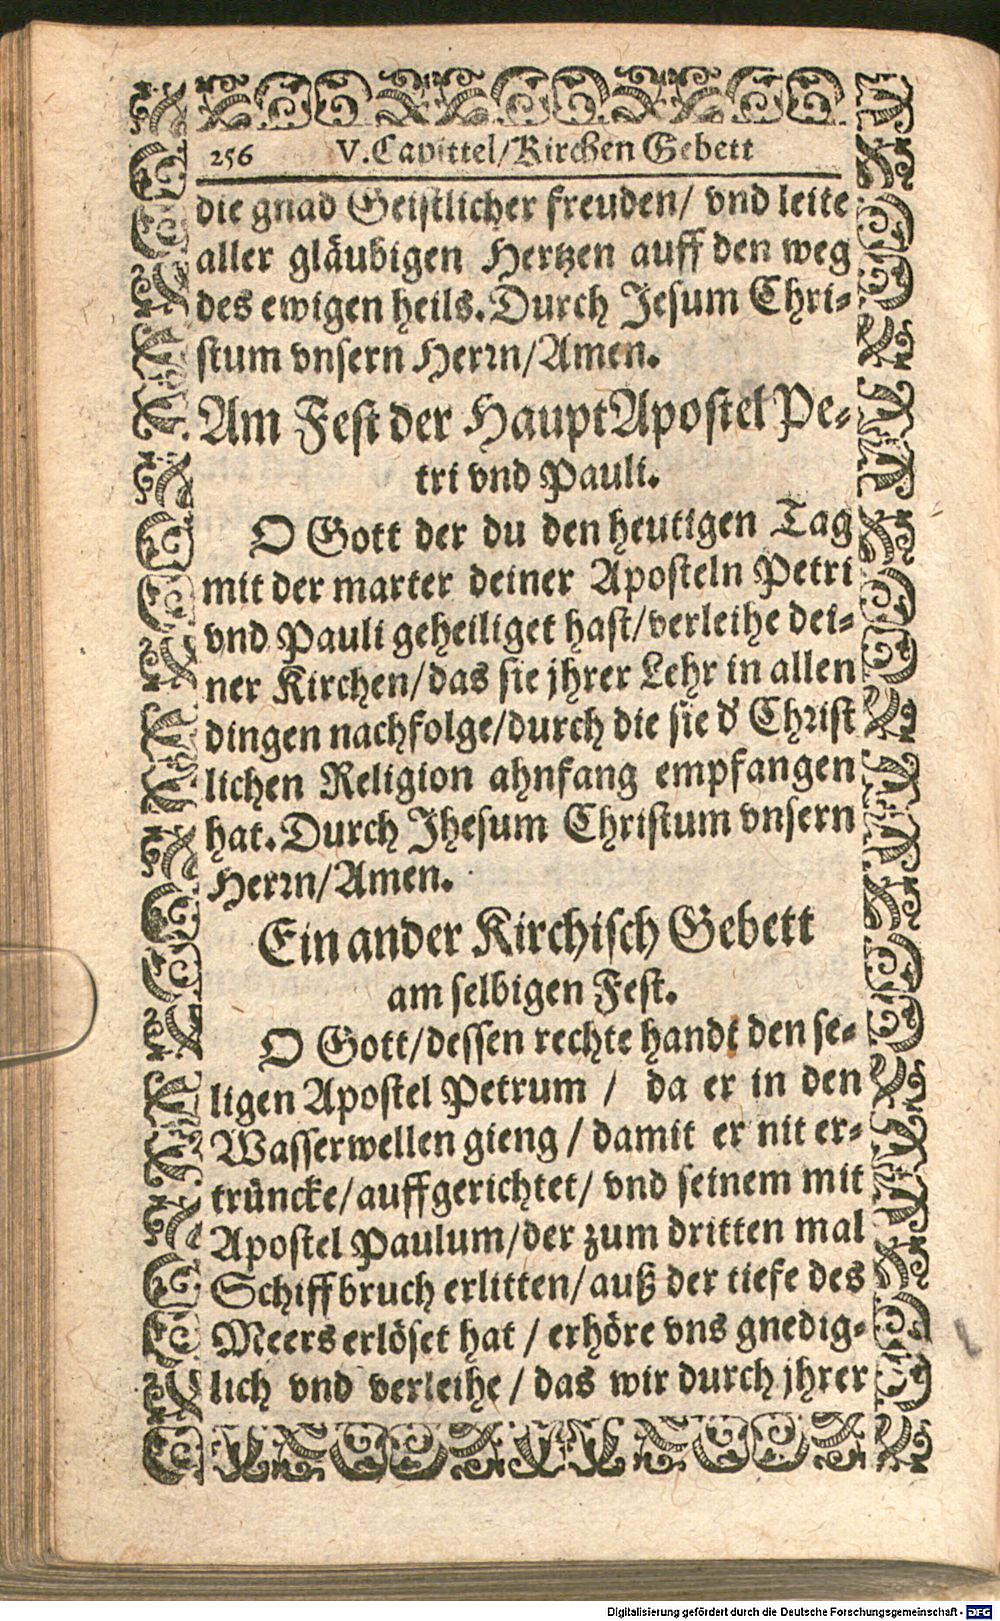 256 V. Capittel/Kirchen Gebett
die gnad Geistlicher freuden/ vnd leite
aller gläubigen Hertzen auff den weg
des ewigen heils. Durch Jesum Chri-
stum vnsern Herrn/Amen.
Am Fest der HauptApostel Pe-
tri vnd Pauli.
O Gott der du den heutigen Tag
mit der marter deiner Aposteln Petri
vnd Pauli geheiliget hast/verleihe dei-
ner Kirchen/das sie jhrer Lehr in allen
dingen nachfolge/durch die sie d' Christ
lichen Religion ahnfang empfangen
hat. Durch Jhesum Christum vnsern
Herrn/Amen.
Ein ander Kirchisch Gebett
am selbigen Fest.
O Gott/dessen rechte handt den se-
ligen Apostel Petrum / da er in den
Wasserwellen gieng / damit er nit er-
trüncke/auffgerichtet/ vnd seinem mit
Apostel Paulum/der zum dritten mal
Schiffbruch erlitten/auß der tiefe des
Meers erlöset hat / erhöre vns gnedig-
lich vnd verleihe / das wir durch jhrer
Digitalisierung gefördert durch die Deutsche Forschungsgemeinschaft - DFG